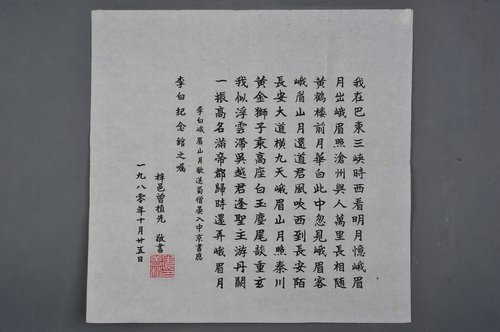 我在巴東三峽時西看明月憶峨眉
月出峨眉照滄州與人萬里長相隨
黃鶴樓前月華白此中忽見峨眉客
峨眉山月還送君風吹西到長安陌
長安大道橫九天峨眉山月照秦川
黃金獅子乘高座白玉麈尾談重玄
我似浮雲滯吳越君逢聖主游丹闕
一振高名滿帝都歸時還弄峨眉月
李白峨眉山月歌送蜀僧晏入中京書應
李白紀念館之囑
梓邑曾植先 敬書
一九八〇年十月廿五日